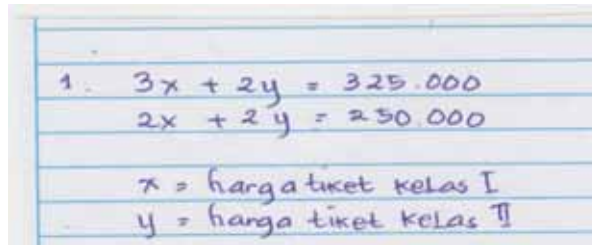 1. 3x + 2y = 325.000
2x + 2y = 250.000
x = harga tiket kelas I
y = harga tiket kelas II